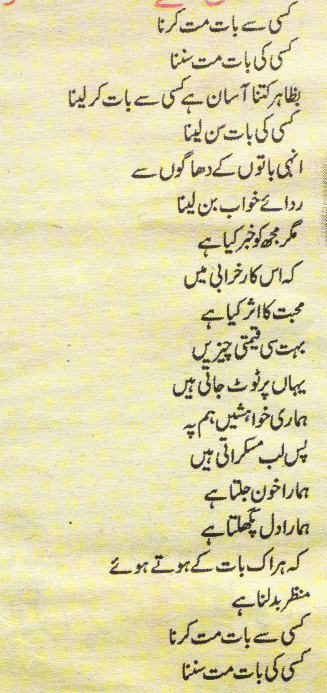 کسی سے بات مت کرنا
کسی کی بات مت سننا
بظاہر کتنا آسان ہے کسی سے بات کر لینا
کسی کی بات سن لینا
انہی باتوں کے دھاگوں سے
ردائے خواب بن لینا
مگر مجھ کو خبر کیا ہے
کہ اس کار خرابی میں
محبت کا اثر کیا ہے
بہت سی قیمتی چیزیں
یہاں پر ٹوٹ جاتی ہیں
ہماری خواہشیں ہم پہ
پس لب مسکراتی ہیں
ہمارا خون جلتا ہے
ہمارا دل پگھلتا ہے
کہ ہر اک بات کے ہوتے ہوئے
منظر بدلنا ہے
کسی سے بات مت کرنا
کسی کی بات مت سننا